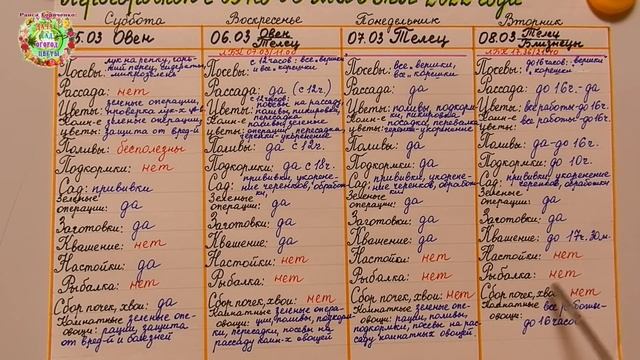 Раиса Горяченко
САД
ОГОРОД
ЦВЕТЫ
2022 года
Суббота
5.03 Овен
Посевы: лук на репку, горький перец, сидераты, микрозелень
Рассада: нет
Цветы: зеленые операции, проверка лук-х цв-в
Комн-е цветы: зеленые операции, защита от вред-й
Поливы: бесполезны
Подкормки: нет
Сад: прививки
Зеленые операции: да
Заготовки: да
Квашение: нет
Настойки: да
Рыбалка: нет
Сбор почек, хвои: да
Комнатные овощи: зеленые операции, защита от вред-й и болезней
Воскресенье
06.03 Овен Телец
Посевы: 12 часов: все вершки и все корешки
Рассада: да (с 12ч.)
Цветы: с 12 часов: посевы на рассаду, поливы, пикировка, пересадка
Комн-е цветы: поливы, зеленые операции, пересадка, черенки-укоренение
Поливы: да с 12ч.
Подкормки: да с 12ч.
Сад: прививки, укоренение черенков, обработки
Зеленые операции: да
Заготовки: да
Квашение: да
Настойки: нет
Рыбалка: нет
Сбор почек, хвои: нет
Комнатные овощи: зеленые операции, поливы, подкормки, пересадки, посевы на рассаду комн-х овощей
Понедельник
07.03 Телец
Посевы: все вершки, все корешки
Рассада: да
Цветы: поливы, подкормки, пикировка
Комн-е цветы: посадка, перевалка, черенки-укоренение
Поливы: да
Подкормки: да
Сад: прививки, укоренение черенков, обработки
Зеленые операции: да
Заготовки: да
Квашение: да
Настойки: нет
Рыбалка: нет
Сбор почек, хвои: нет
Комнатные овощи: зеленые операции, поливы, подкормки, посевы на рассаду комнатных овощей
Вторник
08.03 Телец Близнецы
Посевы: до 16 часов: вершки, корешки
Рассада: до 16ч.-да
Цветы: все работы-до 16ч.
Комн-е цветы: все работы-до 16ч.
Поливы: да-до 16ч.
Подкормки: до 10ч.
Сад: прививки, укоренение черенков, обработки
Зеленые операции: да
Заготовки: да
Квашение: до 17ч. 30м.
Настойки: нет
Рыбалка: нет
Сбор почек, хвои: нет
Комнатные овощи: все работы-до 16 часов